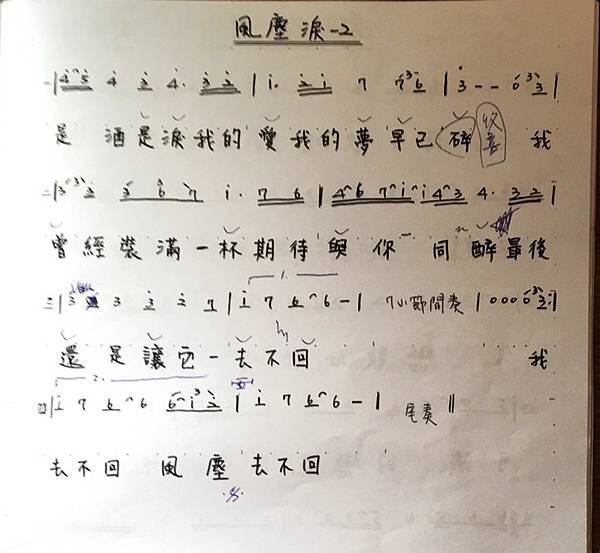 風塵淚-2
一|4^5 4 2 4. 3 2 | 1. 2 1 7 7^3 6 | 3 - - 0 3 3 |
是 酒是淚我的愛我的夢早已碎 收音 我
二|3 3 3 3 6 7 1. 7 6 | 4^6 7^1^1 4^3 4. 3 3 |
曾經裝滿一杯期待與你 同醉最後
三|3 3 3 2 7 | 1 7 6^6 - | 7小節間奏 | 0 0 0 0 3 3 :|
還是讓它一去不回 我
四|1 7 6^6 6^1 2 | 1 7 6^6 - | 尾奏 ||
去不回 風塵去不回